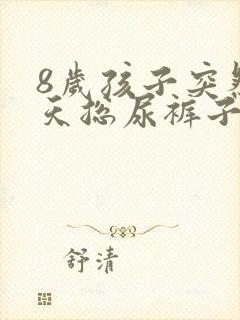 8歲孩子突然
天捴尿裤子
舒清